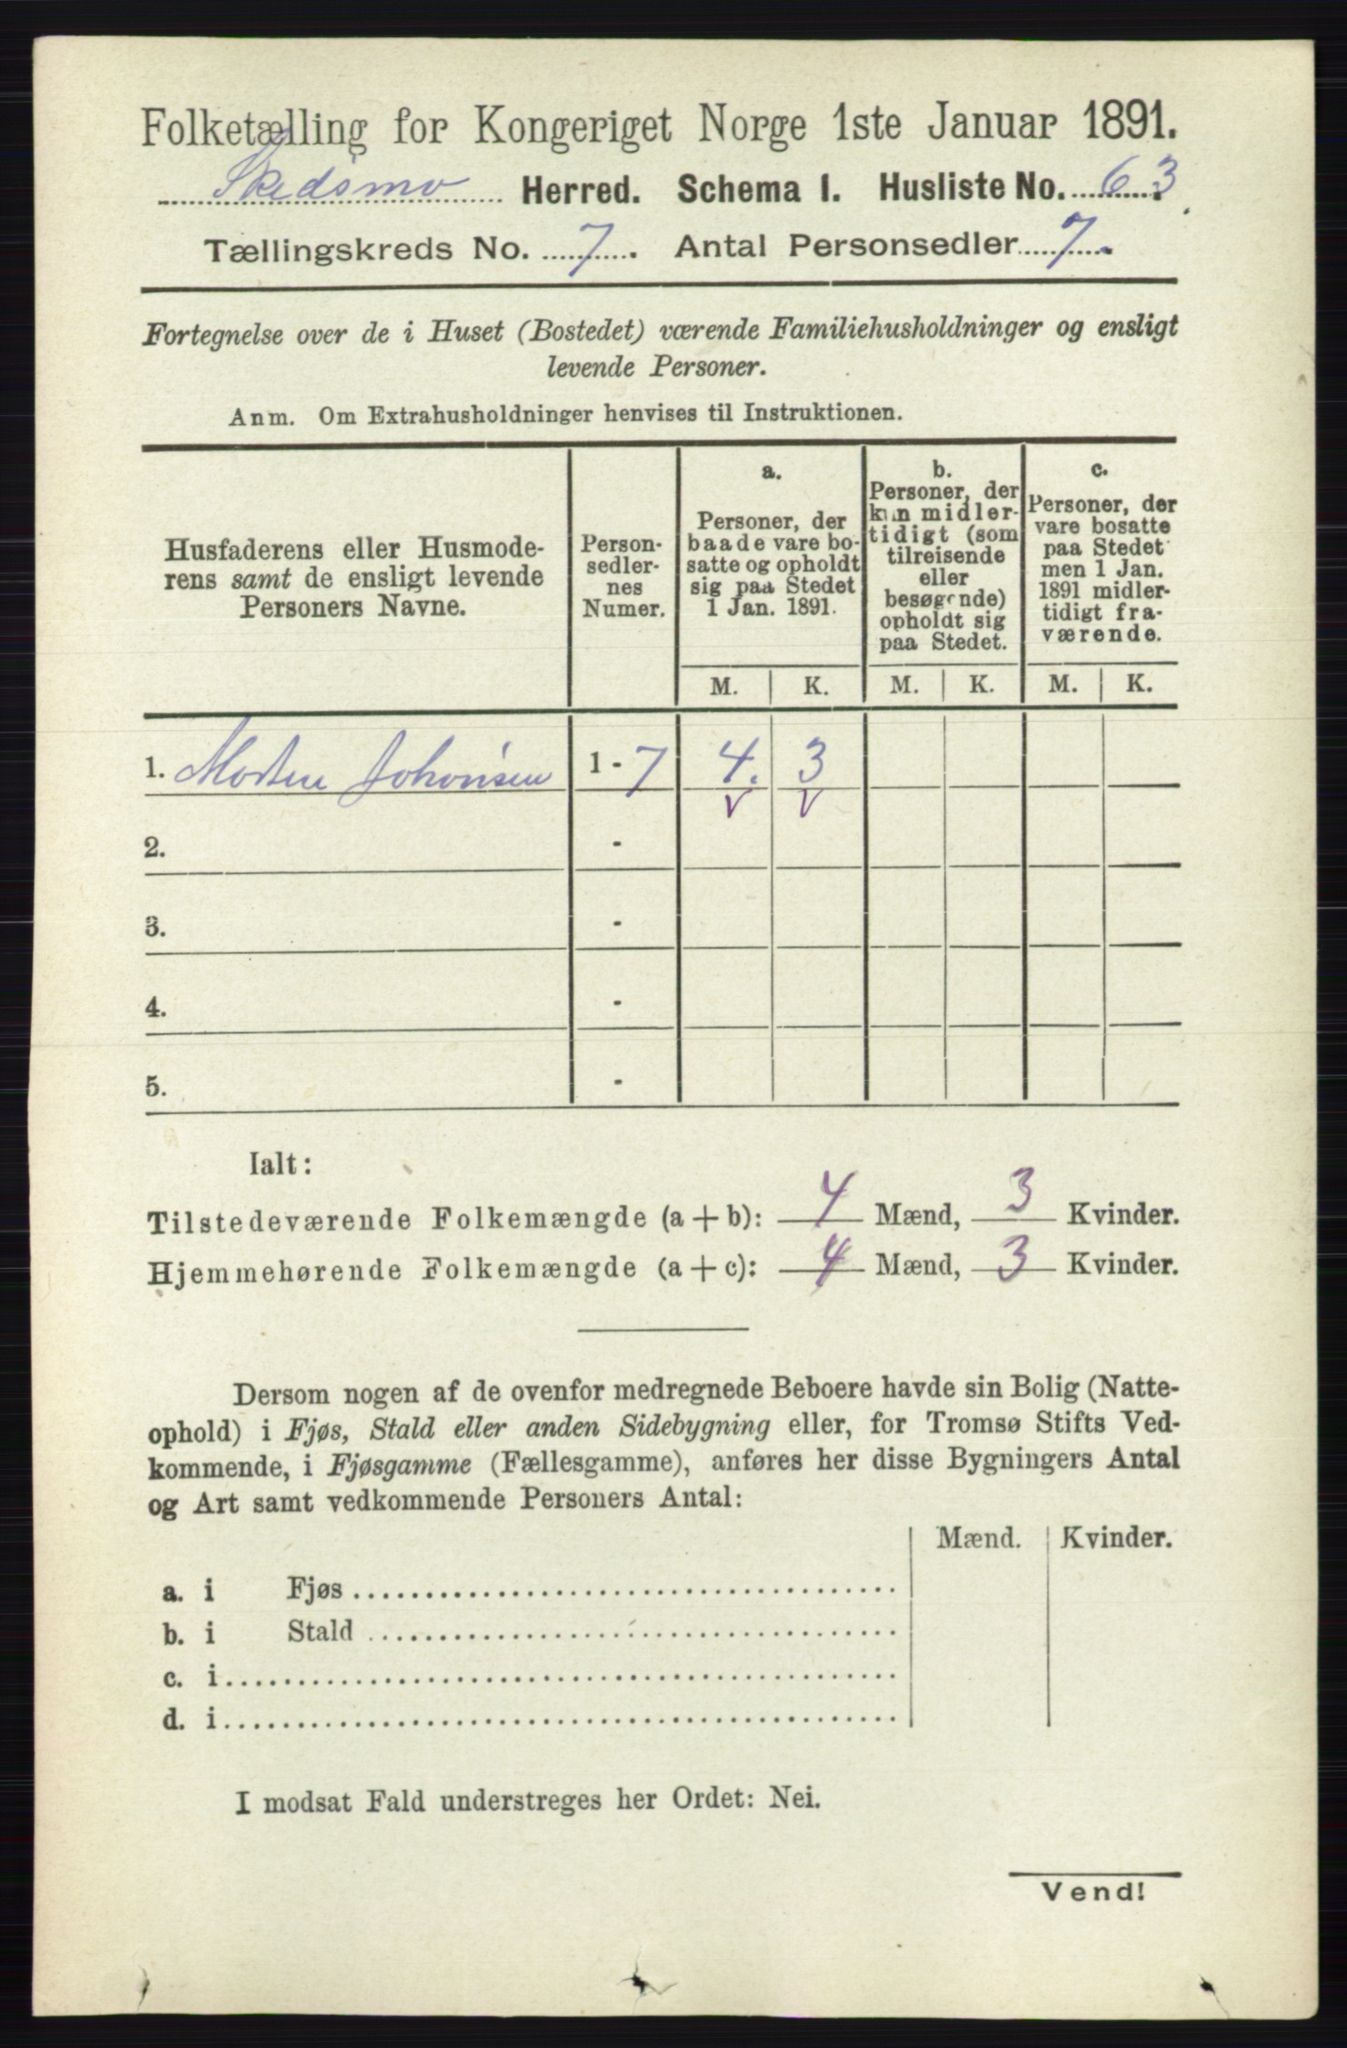 Folketælling for Kongeriget Norge 1ste Januar 1891.
Skedsmo Herred. Schema I. Husliste No. 63
Tællingskreds No. 7. Antal Personsedler 7.
Fortegnelse over de i Huset (Bostedet) værende Familiehusholdninger og ensligt
levende Personer.
Anm. Om Extrahusholdninger henvises til Instruktionen.
Husfaderens eller Husmode-
rens samt de ensligt levende
Personers Navne.
Person-
sedler-
nes
Numer.
a.
Personer, der
baade vare bo-
satte og opholdt
sig paa Stedet
1 Jan. 1891.
b.
Personer, der
kun midler-
tidigt (som
tilreisende
eller
besøgende)
opholdt sig
paa Stedet.
c.
Personer, der
vare bosatte
paa Stedet
men 1 Jan.
1891 midler-
tidigt fra-
værende.
M. K. M. K. M. K.
1. Morten Johansen 1 - 7 4. 3
v v
2. -
3. -
4. -
5. -
Ialt:
Tilstedeværende Folkemængde (a + b): 4 Mænd, 3 Kvinder.
Hjemmehørende Folkemængde (a + c): 4 Mænd, 3 Kvinder.
Dersom nogen af de ovenfor medregnede Beboere havde sin Bolig (Natte-
ophold) i Fjøs, Stald eller anden Sidebygning eller, for Tromsø Stifts Ved-
kommende, i Fjøsgamme (Fællesgamme), anføres her disse Bygningers Antal
og Art samt vedkommende Personers Antal:
Mænd. Kvinder.
a. i Fjøs
b. i Stald
c. i
d. i
I modsat Fald understreges her Ordet: Nei.
Vend!